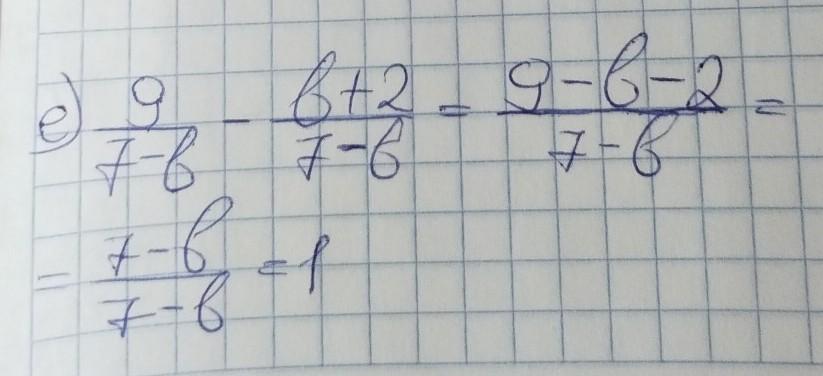 е) 9/(7-b) - (b+2)/(7-b) = (9-b-2)/(7-b) =
= (7-b)/(7-b) = 1